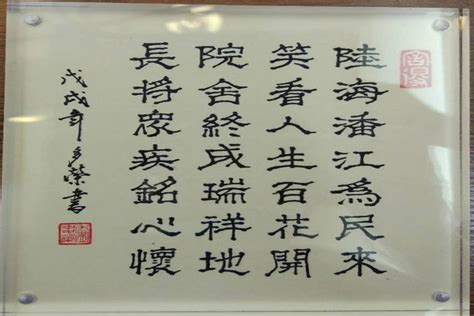 陸海潘江為民來
笑看人生百花開
院舍終成瑞祥地
長將眾疾銘心懷
戊戌年多榮書